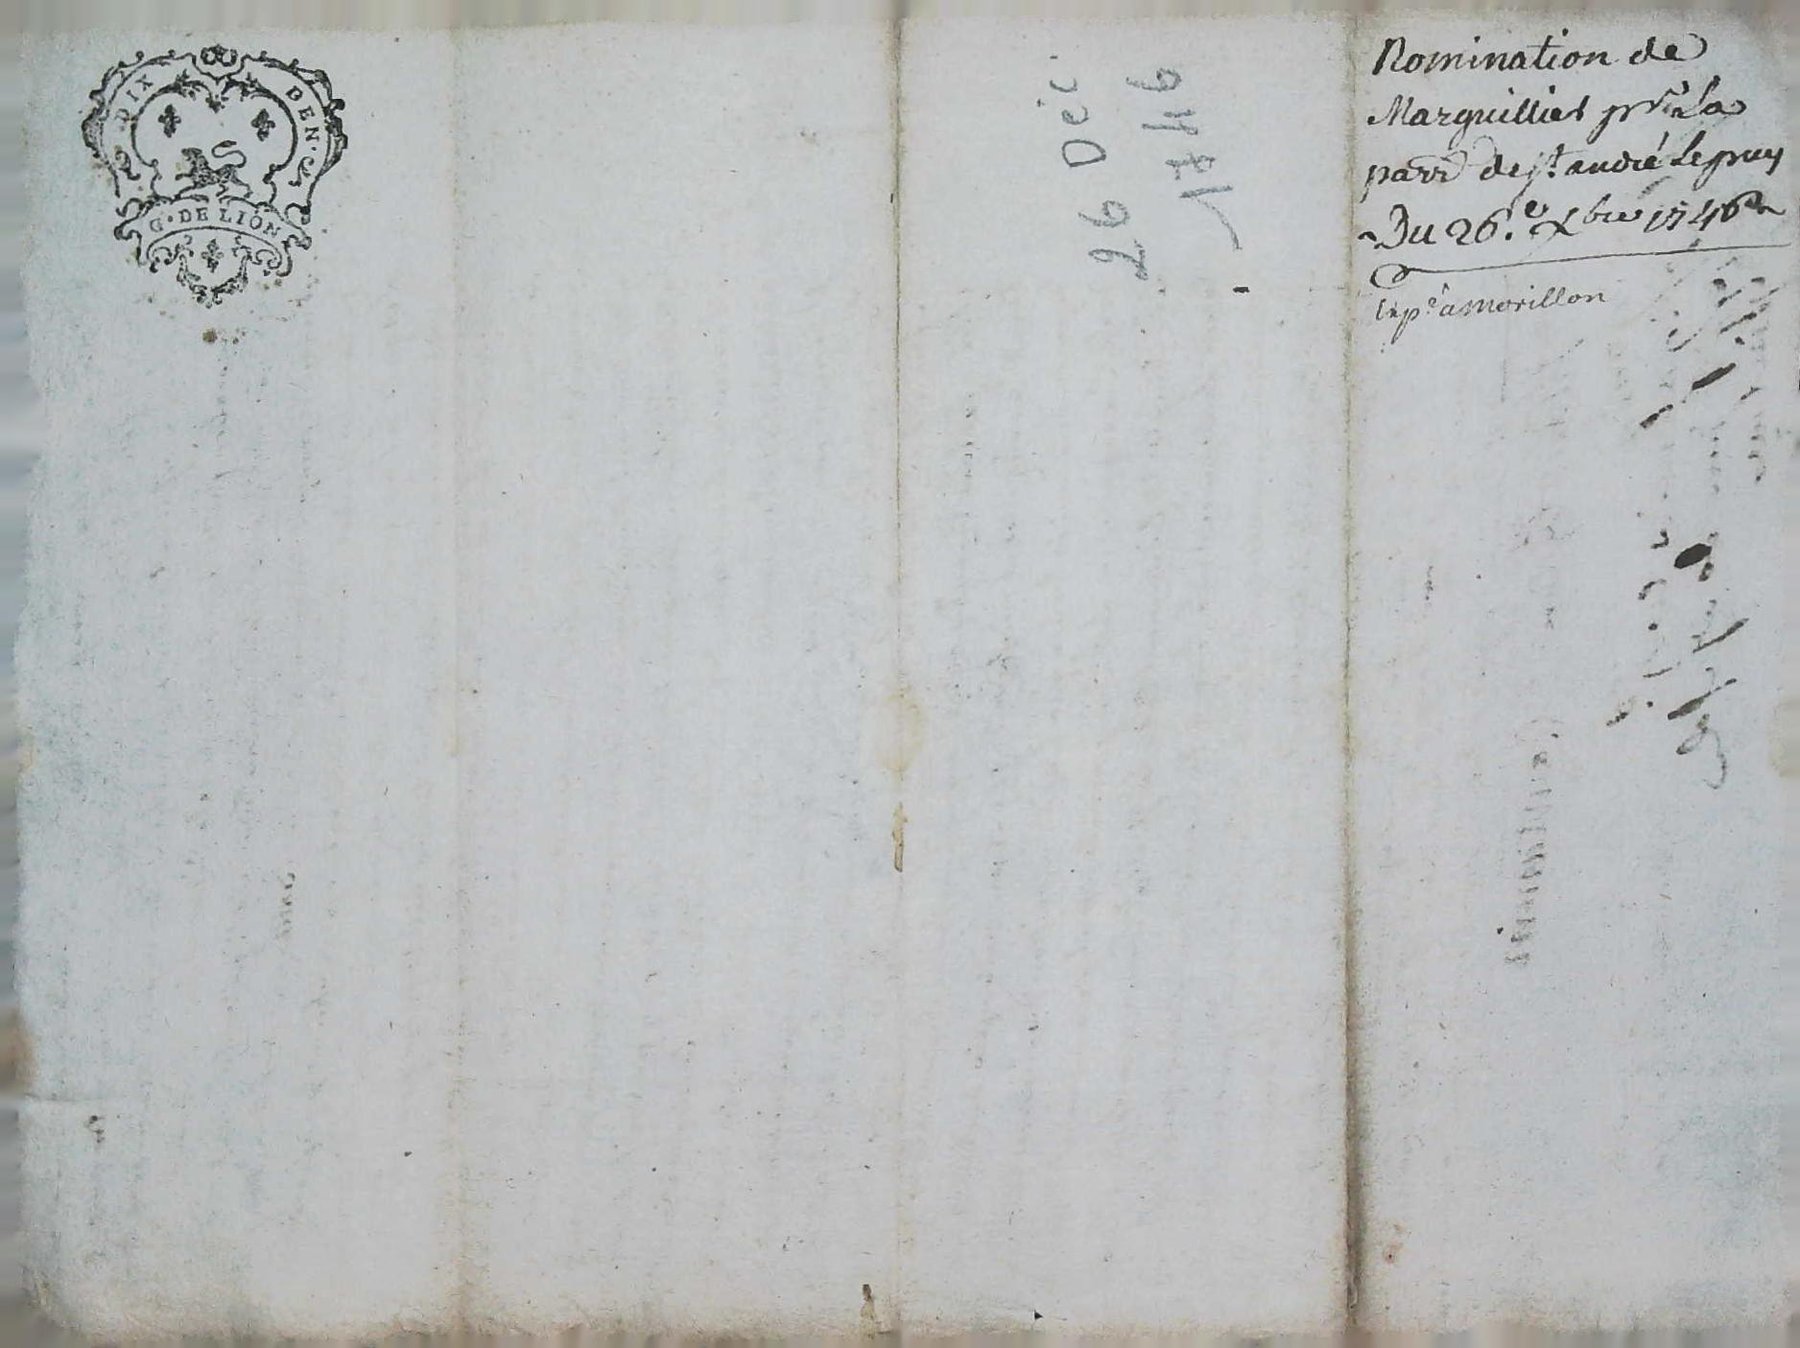 DIX DEN.
G. DE LION
26 Déc
1746
Nomination de
Marguillier pr. La
parr. de st. andré Lepuy
Du 26.e Xbre 1746
Exp.é a morillon